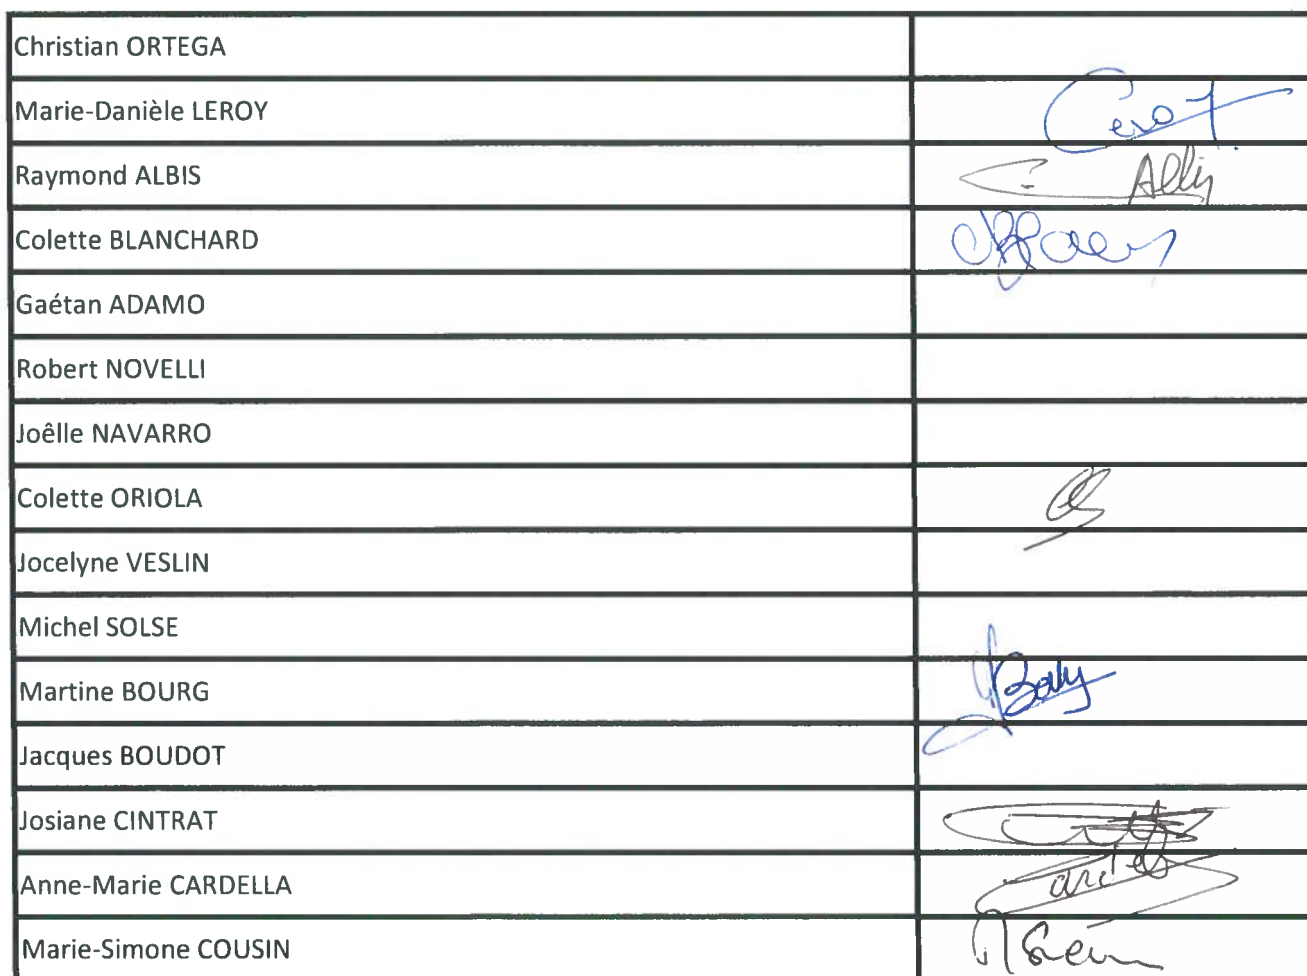 Christian ORTEGA
Marie-Danièle LEROY
Raymond ALBIS
Colette BLANCHARD
Gaétan ADAMO
Robert NOVELLI
Joêlle NAVARRO
Colette ORIOLA
Jocelyne VESLIN
Michel SOLSE
Martine BOURG
Jacques BOUDOT
Josiane CINTRAT
Anne-Marie CARDELLA
Marie-Simone COUSIN